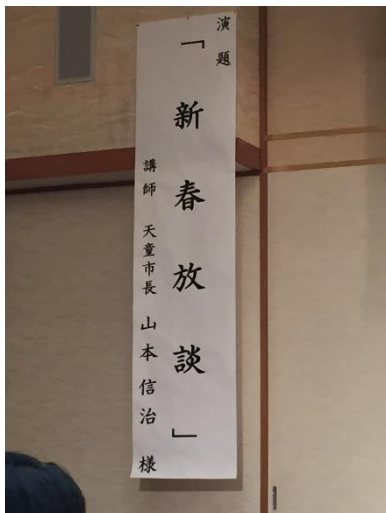 演題
「新春放談」
講師 天童市長 山本信治 様